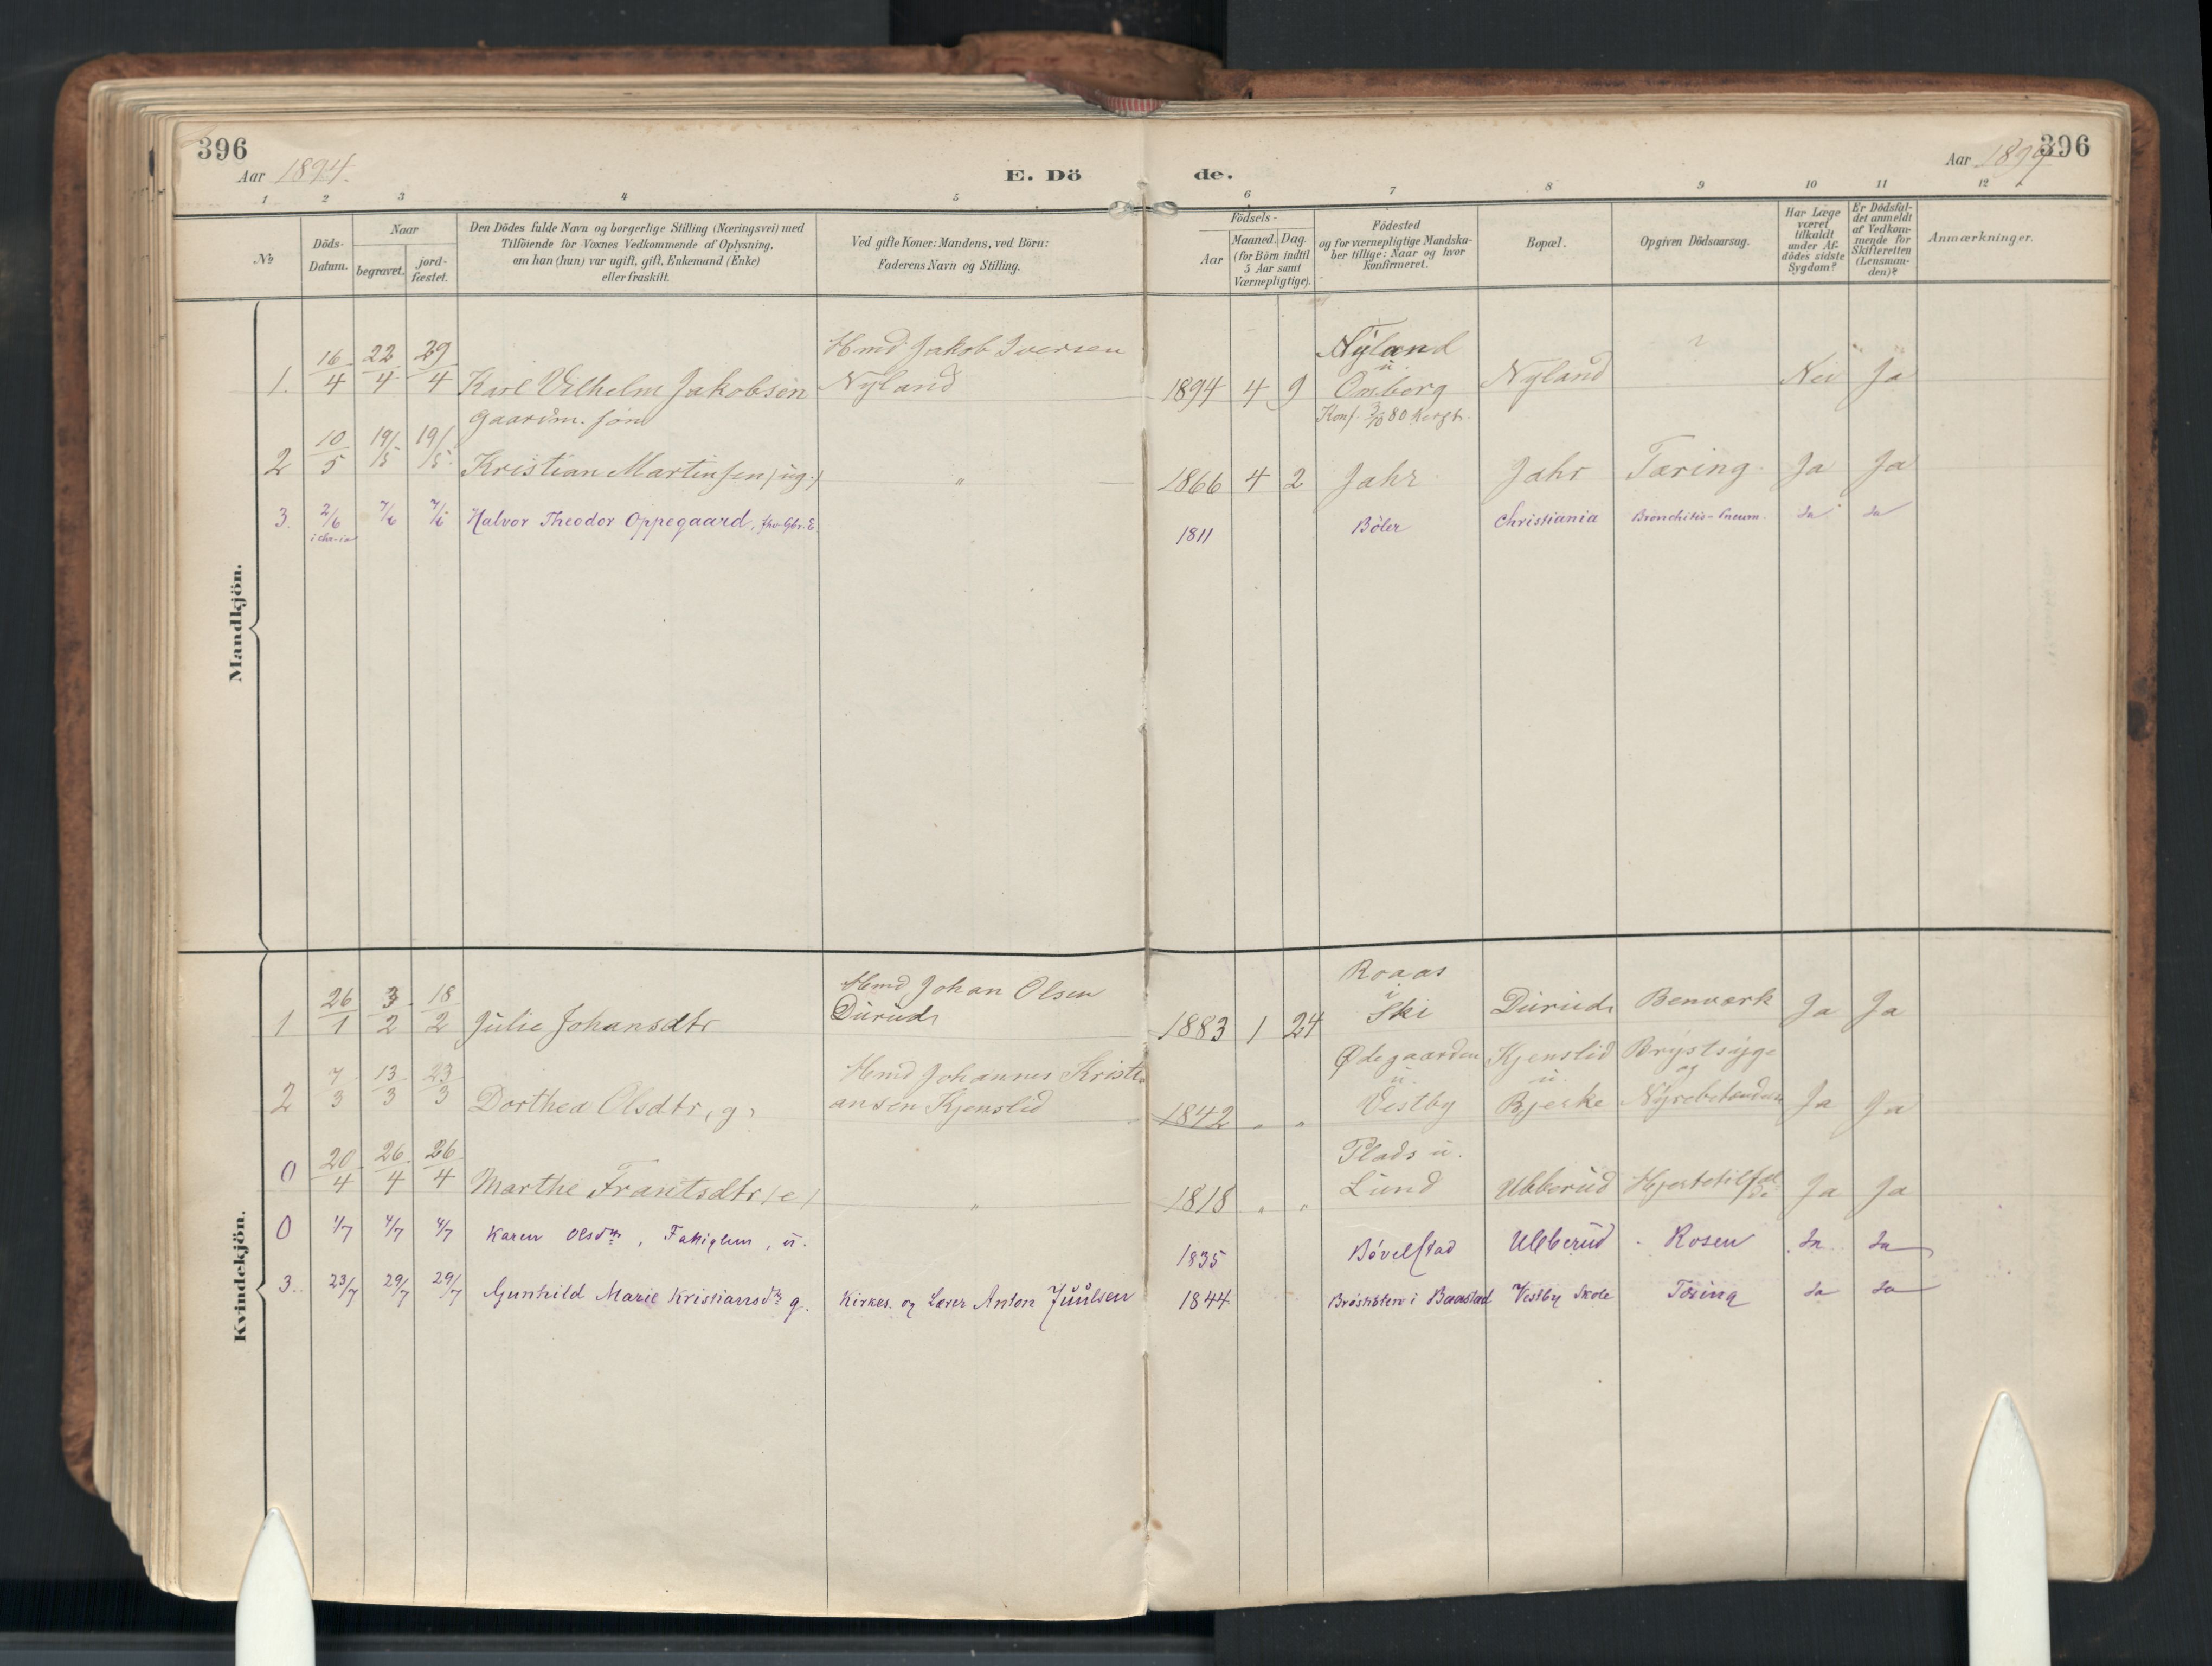 396
396
Aar 1894.
E. Dö
de.
Aar 1894
1 2 3 4 5 6 7 8 9 10 11 12
№
Döds-
Datum.
Naar
begravet.
jord-
fæstet.
Den Dödes fulde Navn og borgerlige Stilling (Næringsvei) med
Tilföiende for Voxnes Vedkommende af Oplysning,
om han (hun) var ugift, gift, Enkemand (Enke)
eller fraskilt.
Ved gifte Koner: Mandens, ved Börn:
Faderens Navn og Stilling.
Födsels-
Aar
Maaned. Dag
(for Börn indtil
5 Aar samt
Værnepligtige).
Födested
og for værnepligtige Mandska-
ber tillige: Naar og hvor
konfirmeret.
Bopæl.
Opgiven Dödsaarsag.
Har Læge
været
tilkaldt
under Af-
dödes sidste
Sygdom?
Er Dödsfal-
det anmeldt
af Vedkom-
mende for
Skifteretten
(Lensman-
den)?
Anmærkninger.
Mandkjön.
Hmd. Jakob Iversen Nyland
1. 16/4 22/4 29/4 Karl Vilhelm Jakobsen Nyland 1894 4 9 u. Omberg Nyland Nei Ja
Gaardm. søn Konf. 3/10 80
2 10/5 19/5 19/5 Kristian Martinsen (ug.) " 1866 4 2 Jahr Jahr Tæring Ja Ja
3. 2/6 7/6 7/6 Halvor Theodor Oppegaard, 1811 Böler Christiania Bronchitis-Pneum. Ja Ja
i Chr-ia
Kvindekjön.
Hmd Johan Olsen Roaas
1 26/1 3/2 18/2 Julie Johansdtr Durud 1883 1 24 i Ski Durud Benværk Ja Ja
Hmd Johannes Kristi- Ødegaarden Kjenslid Brystsyge
2 7/3 13/3 23/3 Dorthea Olsdtr, g, ansen Kjenslid 1842 " " u. Vestby u. Bjerke og Ja Ja
Plads u.
0 20/4 26/4 26/4 Marthe Frantsdtr (e) " 1818 " " Lund Ubberud Ja Ja
0 1/7 4/7 4/7 Karen Olsdtr, Fattiglem, u. 1835 Bövelstad Ubberud Rosen Ja Ja
3. 23/7 29/7 29/7 Gunhild Marie Kristiansdtr g. Kirkes. og Lærer Anton Juulsen 1844 i Baastad Vestby Skole Tæring Ja Ja